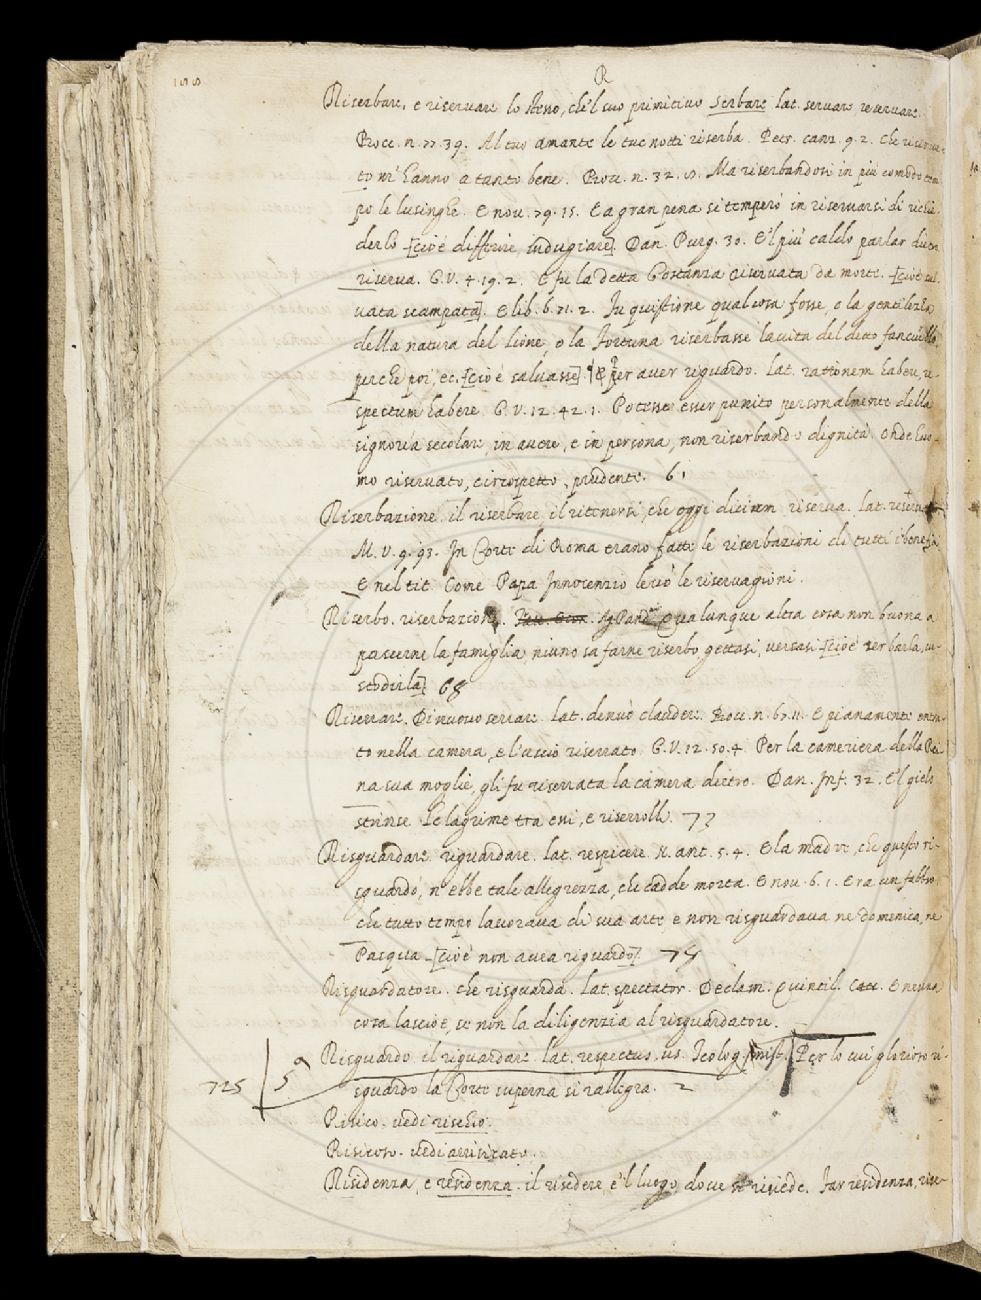 R
Riserbare, e riservare lo stesso, che'l suo primitivo serbare lat. servare, reservare.
Bocc. n. 77. 39. Al tuo amante le tue notti riserba. Petr. canz. 9. 2. Che riserva-
to m'hanno a tanto bene. Bocc. n. 32. Ma riserbandosi in più comodo tem
po le lusinghe. E nov. 79. 15. E a gran pena si temperò in riservarsi di richie
derlo [cioè differire, indugiare] Dan. Purg. 30. E'l più caldo parlar dietro
riserva. G. V. 4. 19. 2. E fu la detta Gostanza riservata da morte. [cioè sal
vata scampata]. E lib. 6. 71. 2. In quistione qual cosa fosse, o la gentilezza
della natura del lione, o la fortuna riserbasse la vita del detto fanciullo
perche poi, ec. [cioè salvasse] per aver riguardo. Lat. rationem habere, re-
spectum habere. G. V. 12. 42. 1. Potesse esser punito personalmente della
signoria secolare, in avere, e in persona, non riserbando dignità. Onde huo
mo riservato, circospetto, prudente. 61
Riserbazione. il riserbare, il ritenersi, che oggi diciam riserva. Lat.
M. V. 9. 93. In Corte di Roma erano fatte le riserbazioni di tutti i benefizi
E nel tit. Come Papa Innocenzio levò le riservagioni.
Riserbo. riserbazione. Ag. Pand. Qualunque altra cosa non buona a
pascerne la famiglia, niuno sa farne riserbo gettasi, versasi [cioè serbarla, cu-
stodirla] 68
Riserrare. Di nuovo serrare. Lat. denuò claudere. Bocc. n. 67. 11. E pianamente entra-
to nella camera, e l'uscio riserrato. G. V. 12. 50. 4. Per la cameriera della Rei
na sua moglie, gli fu riserrata la camera dietro. Dan. Inf. 32. E'l gielo
strinse le lagrime tra essi, e riserrolli. 72
Risguardare. riguardare. lat. respicere. N. ant. 5. 4. E la madre, che questo ri-
sguardò, n'ebbe tale allegrezza, che cadde morta. E nov. 6. 1. Era un fabbro
che tutto tempo lavorava di sua arte e non risguardava ne domenica, ne
Pasqua [cioè non avea riguardo]. 75
Risguardatore. che risguarda. Lat. spectator. Declam. Quintil. E nessuna
cosa lasciò è, se non la diligenzia al risguardatore.
Risguardo. il riguardare. lat. respectus, us. Teolog. mist. Per lo cui glorioso ri-
725 5 sguardo la Corte superna si rallegra. 2
Risico. vedi rischio.
Risicoso. vedi arrisicato.
Risidenza, e residenza. il risedere, e'l luogo, dove si risiede. Far residenza, rise-